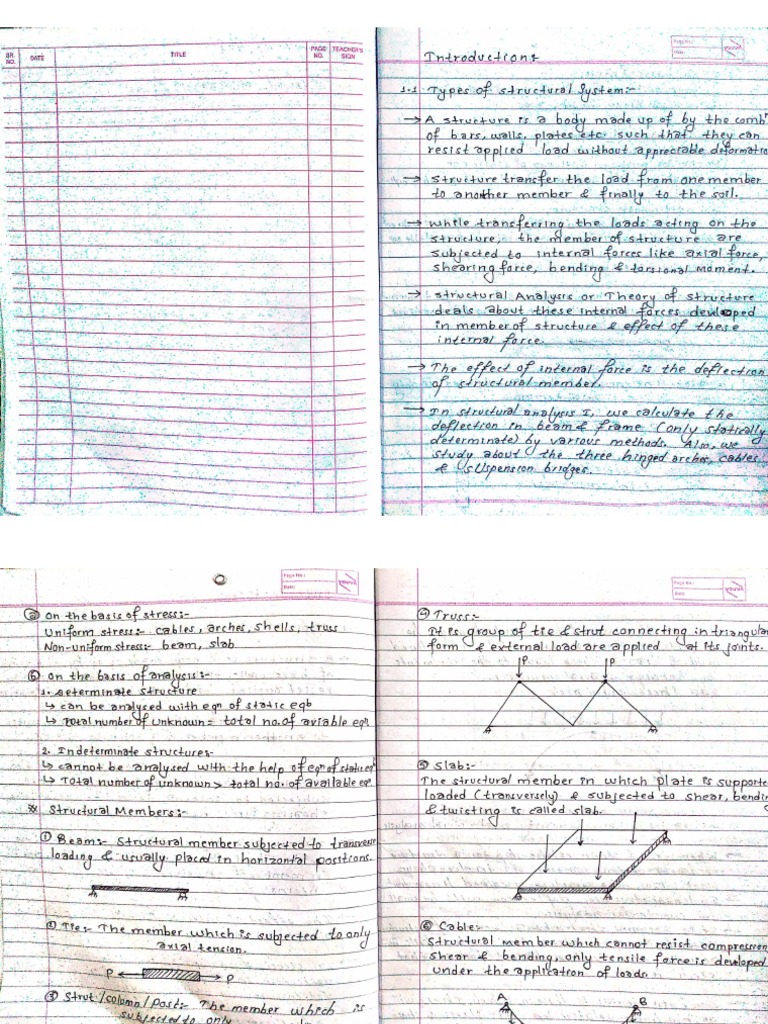 SR. NO.
DATE
TITLE
PAGE NO.
TEACHER'S SIGN
Page No.:
Date:
Introduction:-
1.1 Types of structural System:-
→ A structure is a body made up of by the comb
of bars, walls, plates etc such that they can
resist applied load without appreciable deformatio
→ Structure transfer the load from one member
to another member & finally to the soil.
→ While transferring the loads acting on the
structure, the member of structure are
subjected to internal forces like axial force,
shearing force, bending & torsional moment.
→ Structural Analysis or Theory of structure
deals about these internal forces developed
in member of structure & effect of these
internal force.
→ The effect of internal force is the deflection
of structural member.
→ In structural analysis I, we calculate the
deflection in beam & frame (only statically
determinate) by various methods. Also, we
study about the three hinged arches, cables
& suspension bridges.
Page No.:
Date:
⑤ On the basis of stress:-
Uniform stress:- cables, arches, shells, truss
Non-uniform stress:- beam, slab
⑥ On the basis of analysis:-
1. Determinate structure
↳ can be analysed with eqn of static eqb
↳ Total number of unknown = total no. of aviable eqn
2. Indeterminate structure:-
↳ cannot be analysed with the help of eqn of static eqb
↳ Total number of unknown > total no. of available eqn.
※ Structural Members:-
① Beam:- Structural member subjected to transverse
loading & usually placed in horizontal positions.
② Tie:- The member which is subjected to only
axial tension.
P
P
③ Strut/column/post:- The member which is
subjected to only
Page No.:
Date:
④ Truss:-
It is group of tie & strut connecting in triangular
form & external load are applied at its joints.
P
P
⑤ Slab:-
The structural member in which plate is supporte
loaded (transversely) & subjected to shear, bendin
& twisting is called slab.
⑥ Cable:-
Structural member which cannot resist compression,
shear & bending, only tensile force is developed
under the application of loads.
A
B